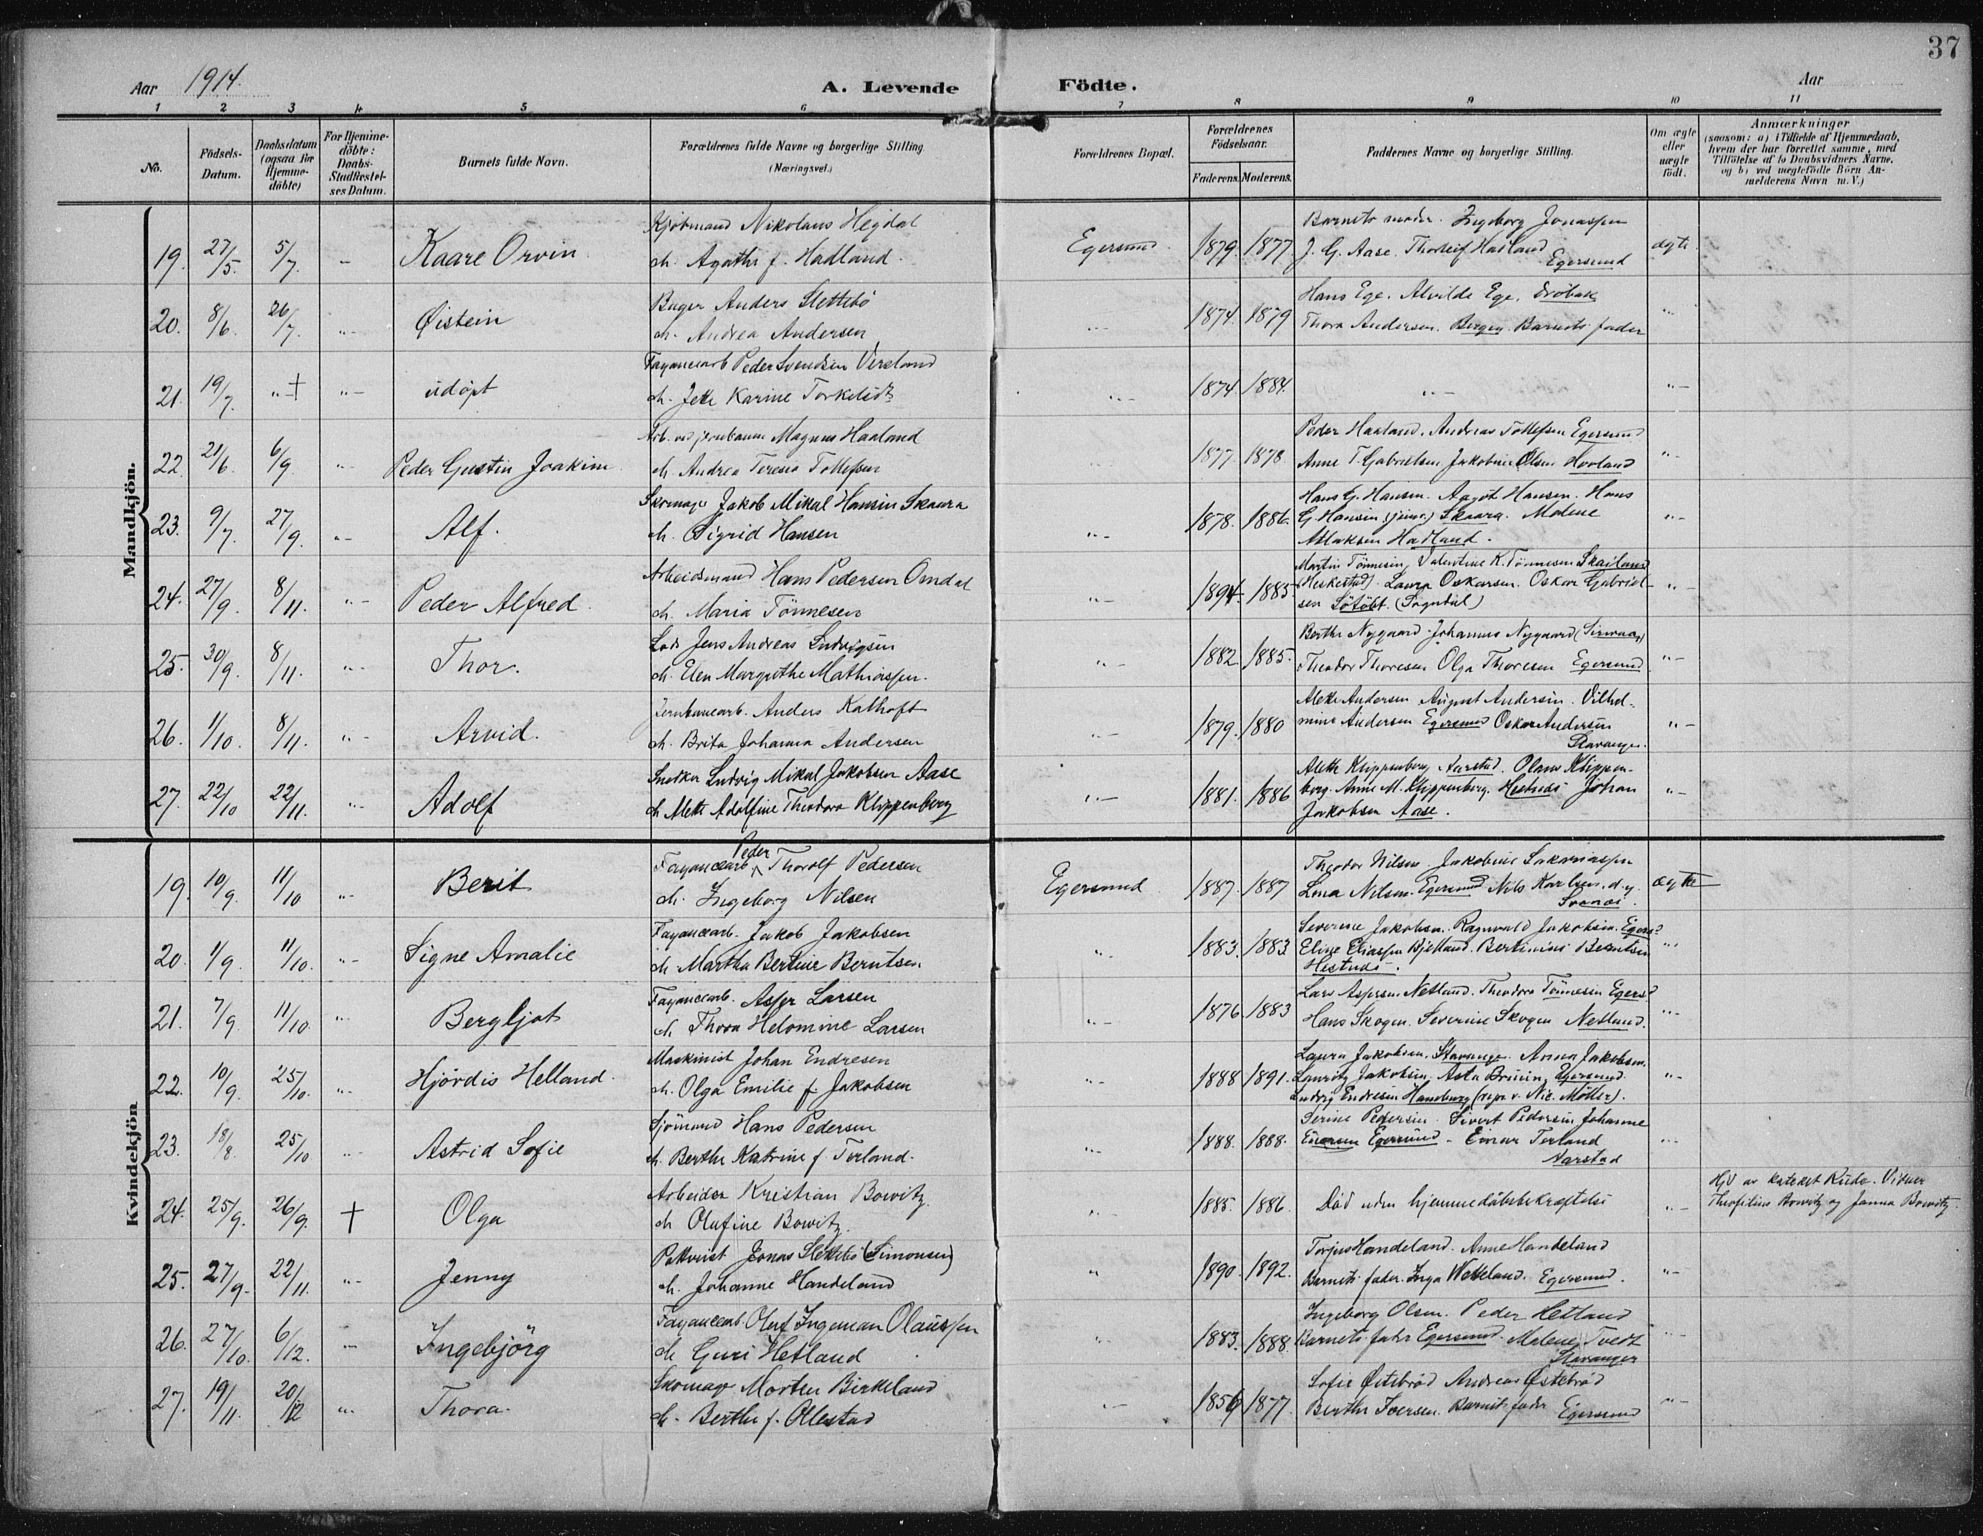 37
Aar 1914.
A. Levende Födte.
Aar
1 2 3 4 5 6 7 8 9 10 11
No.
Födsels-Datum.
Daabsdatum (ogsaa for Hjemme-döbte)
For Hjemme-döbte: Daabs-Stadfæstel-ses Datum.
Barnets fulde Navn.
Forældrenes fulde Navne og borgerlige Stilling (Næringsvei.)
Forældrenes Bopæl.
Forældrenes Födselsaar.
Faderens. Moderens.
Faddernes Navne og borgerlige Stilling.
Om ægte eller uægte födt.
Anmærkninger
(saasom: a) i Tilfælde af Hjemmedaab,
hvem der har forrettet samme, med
Tilföielse af to Daabsvidners Navne,
og b) ved uægtefödte Börn An-
melderens Navn m. V.)
Mandkjön.
19. 27/5 5/7. - Kaare Orvin Kjöbmand Nikolaus Hegdal
h. Agathe f. Hadland. Egersund. 1879. 1877. Barnets moder. Ingeborg Jonassen
J. G. Aase. Thorleif Hadland Egersund ægte
20. 8/6. 26/7. "- Øistein Bager Anders Slettebö
h. Andrea Andersen "- 1874. 1879 Hans Ege. Alvilde Ege. Dröbak
Thora Andersen. Bergen. Barnets fader "-
21. 19/7. "-+ "- udöpt Fayancearb Peder Svendsen Vixeland
h. Jette Karine Torkelsdtr "- 1874. 1884. "-  "-
22. 21/6. 6/9. "- Peder Gustin Joakim Arb. ved jernbanen Magnus Haaland
h. Andrea Teresia Tollefsen "- 1877. 1878. Peder Haaland. Andreas Tollefsen Egersund
Anne T. Gabrielsen. Jakobine Olsen Hovland "-
23. 9/7. 27/9. "- Alf. Skomager Jakob Mikal Hansen Skaara
h. Sigrid Hansen "- 1878. 1886. Hans G. Hansen. Aagot Hansen. Hans
G. Hansen (junr.) Skaara. Malene
Aslaksen Hadland. "-
24. 27/9. 8/11. "- Peder Alfred. Arbeidsmand Hans Pedersen Omdal
h. Maria Tönnesen "- 1894. 1885 Martin Tönnesen, Valentine K. Tönnesen Skailand
(Heskestad). Laura Oskarsen. Oskar Gabriel-
sen (Sogndal) "-
25. 30/9. 8/11. "- Thor. Lods Jens Andreas Ludvigsen
h. Elen Margrethe Mathiassen. "- 1882. 1885. Berthe Nygaard. Johannes Nygaard
Theodor Thoresen Olga Thoresen Egersund "-
26. 1/10. 8/11. "- Arvid. Jernbanearb. Anders Kalhoft
h. Brita Johanna Andersen "- 1879. 1880 Alette Andersen August Andersen. Vilhel-
mine Andersen Egersund Oskar Andersen
Stavanger. "-
27. 22/10 22/11. "- Adolf Snedker Ludvig Mikal Jakobsen Aase
h. Alette Adolfine Theodora Klippenberg "- 1881. 1886 Alette Klippenberg, Aarstad. Olaus Klippen-
berg. Anne M. Klippenberg. Hestnes Johan
Jakobsen Aase. "-
Kvindekjön
19. 10/9. 11/10 "- Berit Fayancearb. Peder Thorolf Pedersen
h. Ingeborg Nilsen Egersund 1887. 1887 Theodor Nilsen. Jakobine Sakariassen
Lina Nilsen. Egersund Nils Karlsen. d.y.
Svanes. ægte
20. 1/9. 11/10. "- Signe Amalie Fayancearb. Jakob Jakobsen
h. Martha Bertine Berntsen "- 1883. 1883 Severine Jakobsen. Ragnvald Jakobsen. Egers?
Eline Eliassen Bjelland. Bertinius Berntsen
Hestnes. "-
21. 7/9. 11/10. "- Bergljot Fayancearb. Asser Larsen
h. Thora Helomine Larsen "- 1876. 1883 Lars Assersen Netland. Theodora Tönnesen Egers?
Hans Skogen. Severine Skogen Netland. "-
22. 10/9. 25/10. "- Hjördis Helland. Maskinist Johan Endresen
h. Olga Emilie f. Jakobsen "- 1888 1891. Laura Jakobsen. Stavanger. Anna Jakobsen.
Lauritz Jakobsen, Asta Egersund
Ludvig Endresen Hamburg (repr. v. Nic. Möller). "-
23. 18/8. 25/10 "- Astrid Sofie Sjömand Hans Pedersen
h. Berthe Katrine f. Terland. "- 1888. 1888. Serine Pedersen. Sivert Pedersen Johanne
Egersund - Einar Terland
Aarstad "-
24. 25/9. 26/9. + Olga Arbeider Kristian Bowitz
h. Olufine Bowitz. 1885. 1886. Död uden hjemmedöbsbekræftelse "- Hjd av kateket Rude. Vidner
Theofilius Bowitz og Janna Bowitz.
25. 27/9. 22/11. "- Jenny Pakvist Jonas Slettebö (Simonsen)
h. Johanne Handeland " 1890. 1892. Torjus Handeland. Anne Handeland
Barnets fader. Inga Wetteland. Egersund. "-
26. 27/10. 6/12. "- Ingebjörg Fayancearb. Oluf Ingeman Olaussen
h. Guri Hetland " 1883. 1888 Ingeborg Olsen. Peder Hetland
Barnets fader Egersund. Malene Tvedt
Stavanger "-
27. 19/11. 20/12 "- Thora. Skomager Morten Birkeland
h. Berthe f. Ollestad "- 1856 1877. Sofie Östebröd Andreas Östebröd
Berthe Iversen. Barnets fader Egersund "-